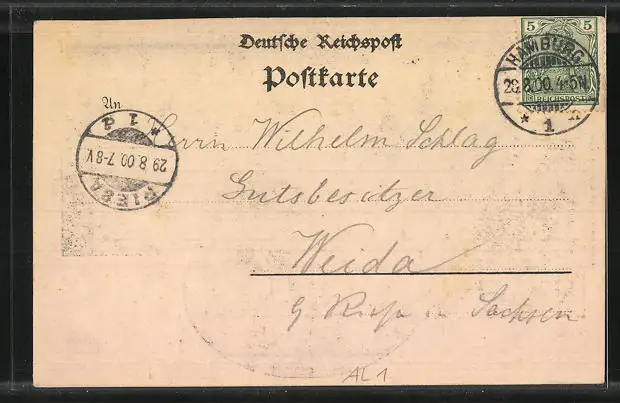 Deutsche Reichspost
Postkarte
5 5
REICHSPOST
HAMBURG
28.8.00. 4-5N.
* 1 n
An
RIESA
29.8.00. 7-8V.
* 1 a
Herrn Wilhelm Schlag
Gutsbesitzer
Weida
b/ Riesa in Sachsen
AL1